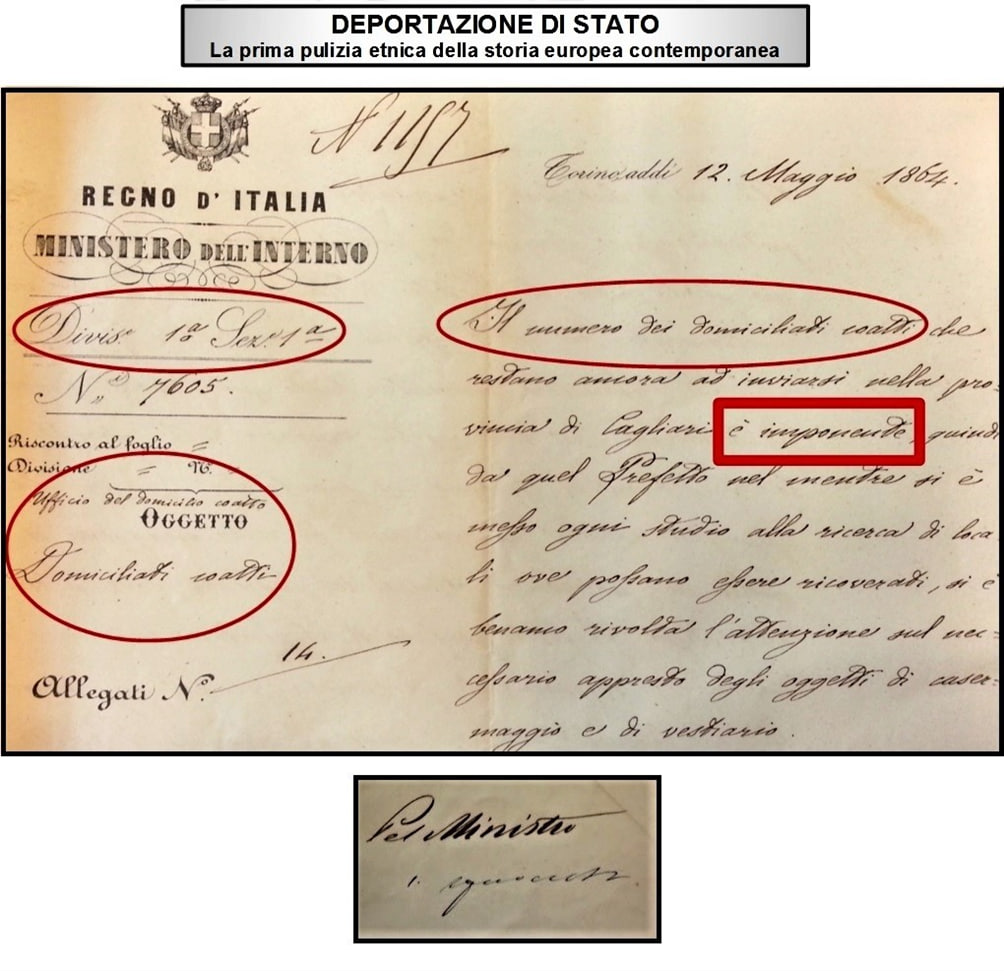 DEPORTAZIONE DI STATO
La prima pulizia etnica della storia europea contemporanea
N 1157
Torino, addì 12. Maggio 1864.
REGNO D' ITALIA
MINISTERO DELL'INTERNO
Divis.e 1a Sez.e 1a
N.o 7605.
Riscontro al foglio =
Divisione = N. =
Ufficio del domicilio coatto
OGGETTO
Domiciliati coatti
Allegati N.o 14.
Il numero dei domiciliati coatti che
restano ancora ad inviarsi nella pro=
vincia di Cagliari è imponente, quindi
da quel Prefetto nel mentre si è
messo ogni studio alla ricerca di loca
li ove possano essere ricoverati, si è
benanco rivolta l'attenzione sul ne=
cessario appresto degli oggetti di caser=
maggio e di vestiario.
Pel Ministro